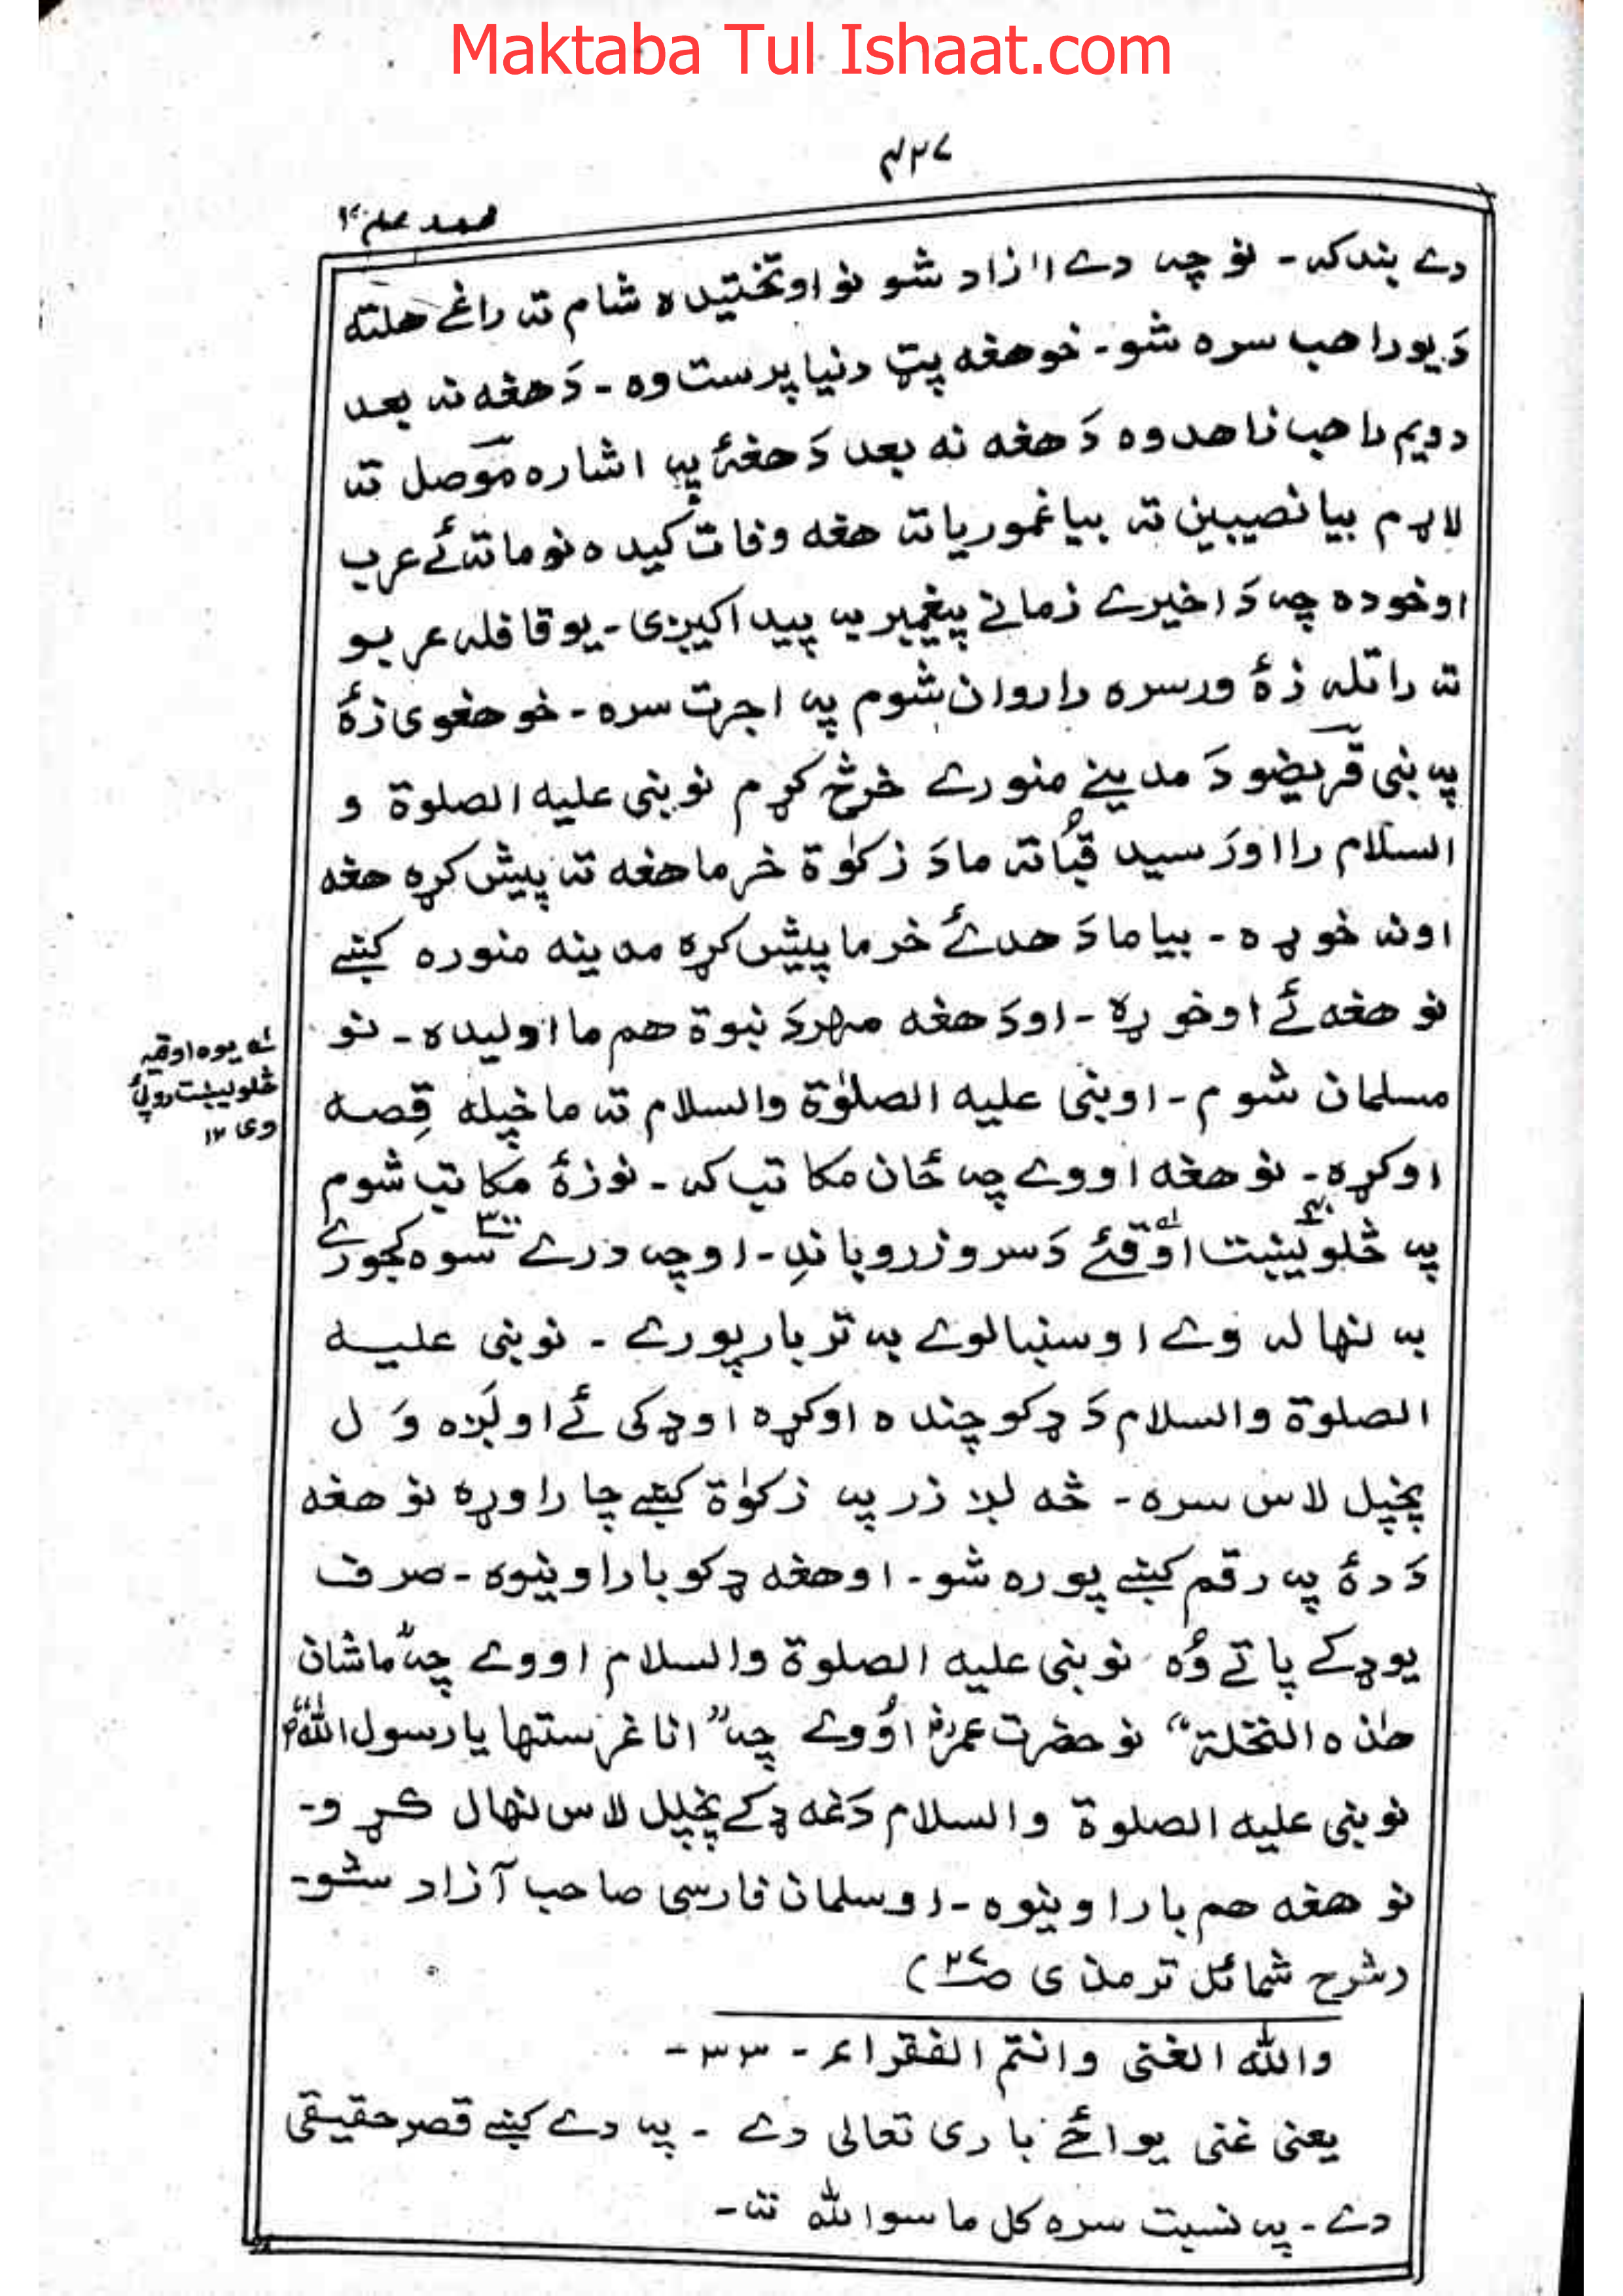 Maktaba Tul Ishaat.com
۴۲۷
محمد علم ۴
دے بند کہ ۔ نو چہ دے اازاد شو نو اوتختیدہ شام تہ راغے ھلتہ
دَ یو راھب سرہ شو ۔ خو ھغہ پټ دنیا پرست وہ ۔ دَ ھغہ نہ بعد
دویم راھب زاھد وہ دَ ھغہ نہ بعد دَ ھغۂ پہ اشارہ مَوصل تہ
لاړم بیا نصیبین تہ بیا غموریا تہ ھغہ وفات کیدہ نو ما تہ ئے عرب
اوخودہ چہ دَ اخیرے زمانے پیغمبر بہ پیدا کیږی ۔ یو قافلہ عربو
تہ راتلہ زۂ ورسرہ را روان شوم پہ اجرت سرہ ۔ خو ھغوی زۂ
پہ بنی قریضو دَ مدینے منورے خرڅ کړم نو نبی علیه الصلوة و
السلام را اورَسید قُبا تہ ما دَ زکوٰة خرما ھغہ تہ پیش کړہ ھغہ
اونہ خوړہ ۔ بیا ما دَ ھدئے خرما پیش کړہ مدینہ منورہ کښے
نو ھغہ ئے اوخوړہ ۔ او دَ ھغہ مہر دَ نبوة ھم ما اولیدہ ۔ نو
مسلمان شوم ۔ او نبی علیه الصلوٰة والسلام تہ ما خپلہ قِصہ
اوکړہ ۔ نو ھغہ اووے چہ ځان مکاتب کہ ۔ نو زۂ مکاتب شوم
پہ څلویښت ۴۰ اوقئے لہ دَ سرو زرو باندِ ۔ او چہ درے سوہ ۳۰۰ کجورے
بہ نہالہ وے او سنبالوے بہ تر بار پورے ۔ نو نبی علیه
الصلوة والسلام دَ ډکو چندہ اوکړہ او ډکی ئے اولږہ وَل
پخپل لاس سرہ ۔ څہ لږ زر پہ زکوٰة کښے چا راوړہ نو ھغہ
دَ دۂ پہ رقم کښے پورہ شو ۔ او ھغہ ډکو بار اونیوہ ۔ صرف
یو ډکے پاتے وُہ نو نبی علیه الصلوة والسلام اووے چہ "ما شان
ھٰذہ النخلة" نو حضرت عمرؓ اوُوے چہ "انا غرستھا یا رسول اللہ ؐ"
نو نبی علیه الصلوة والسلام دَغہ ډکے پخپل لاس نہال کړو ۔
نو ھغہ ھم بار اونیوہ ۔ او سلمان فارسی صاحب آزاد شو ۔
(شرح شمائل ترمذی ص۳۷)
واللہ الغنی وانتم الفقراء ۔ ۳۳ ۔
یعنی غنی یوائځے باری تعالی دے ۔ پہ دے کښے قصر حقیقی
دے ۔ پہ نسبت سرہ کل ما سوا للہ تہ ۔
لہ یوہ اوقیہ
څلویښت روپئ
وی ۱۲